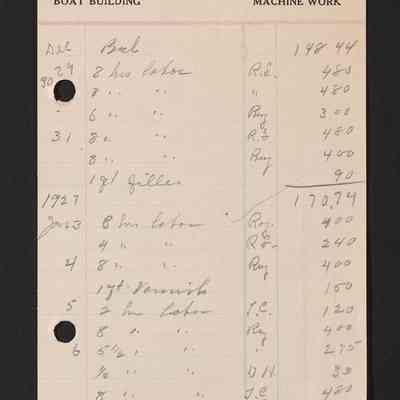 BOAT BUILDING MACHINE WORK
Dec Bal 148 44
29 8 hrs labor R.S. 480
30 8 " " " 480
" 6 " " Ray 300
31 8 " " R.S. 480
8 " " Ray 400
1 qt filler 90
1927 170,74
Jan 3 8 hrs labor Ray 400
4 " " R.S. 240
4 8 " " Ray 400
1 qt Varnish 150
5 2 hrs labor T.C. 120
8 " " Ray 400
6 5½ " " " 275
½ " " D.H. 30
8 " " T.C. 480